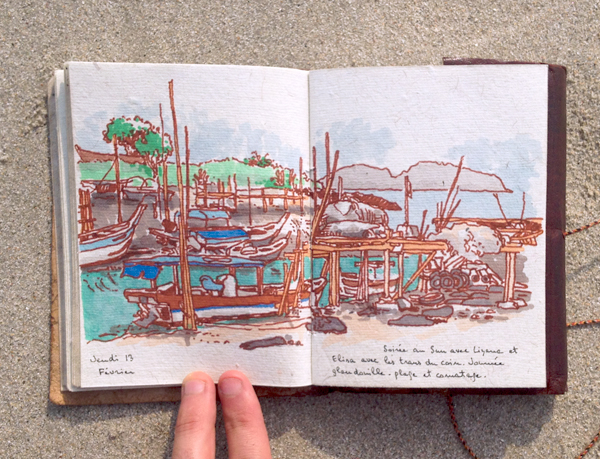 Jeudi 13
Février
Soirée au Sun avec Liyana et
Elisa avec les trans du coin. Journée
glandouille - plage et carnatage.